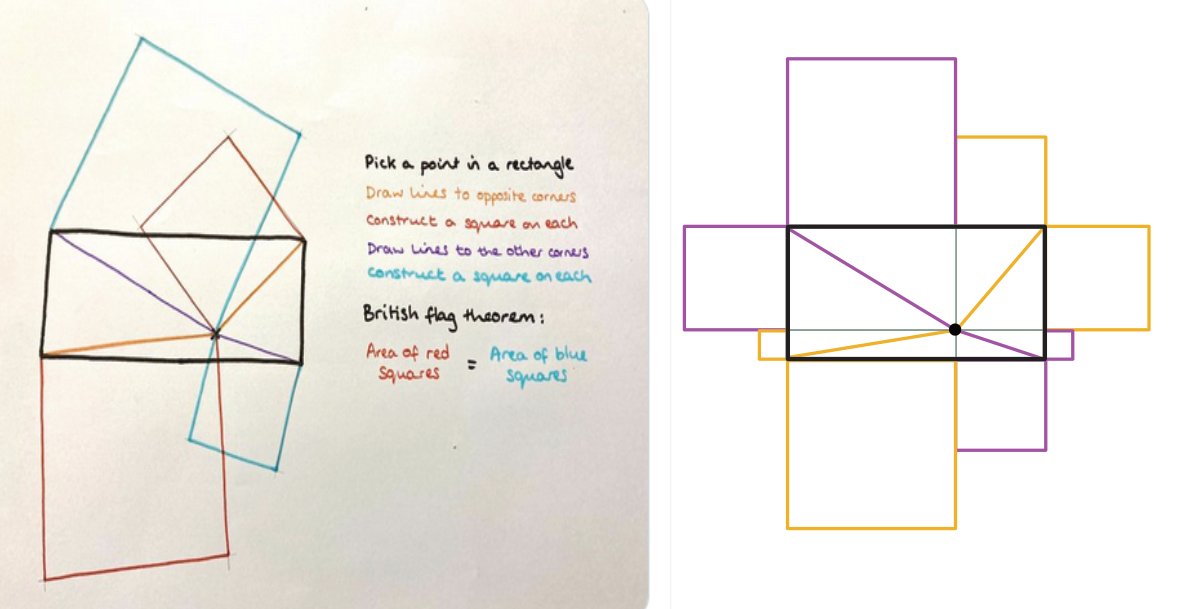 Pick a point in a rectangle
Draw lines to opposite corners
Construct a square on each
Draw lines to the other corners
Construct a square on each
British flag theorem:
Area of red squares = Area of blue squares